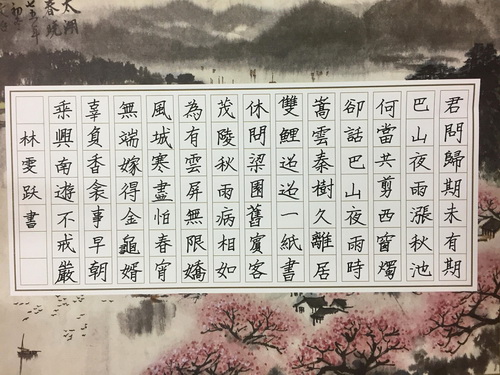 君問歸期未有期
巴山夜雨漲秋池
何當共剪西窗燭
卻話巴山夜雨時
嵩雲秦樹久離居
雙鯉迢迢一紙書
休問梁園舊賓客
茂陵秋雨病相如
為有雲屏無限嬌
風城寒盡怕春宵
無端嫁得金龜婿
辜負香衾事早朝
乘興南遊不戒嚴
林雯跃書
太湖
七五年